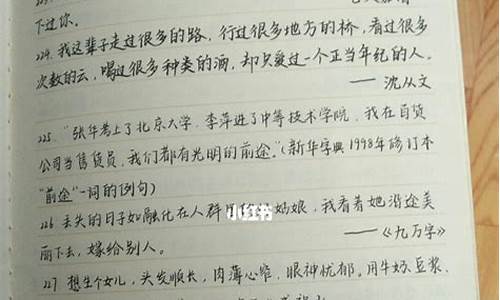 下过你.
224. 我这辈子走过很多的路, 行过很多地方的桥, 看过很多
次数的云, 喝过很多种类的酒, 却只爱过一个正当年纪的人.
—— 沈从文
225. "张华考上了北京大学, 李萍进了中等技术学院, 我在百货
公司当售货员, 我们都有光明的前途."(新华字典1998年修订本
"前途"一词的例句)
226 丢失的日子如融化在人群里的姑娘, 我看着她沿途美
丽下去, 嫁给别人.
——《九万字》
227 想生个女儿, 头发顺长, 肉薄心细, 眼神忧郁. 用牛奶豆浆.
小红书